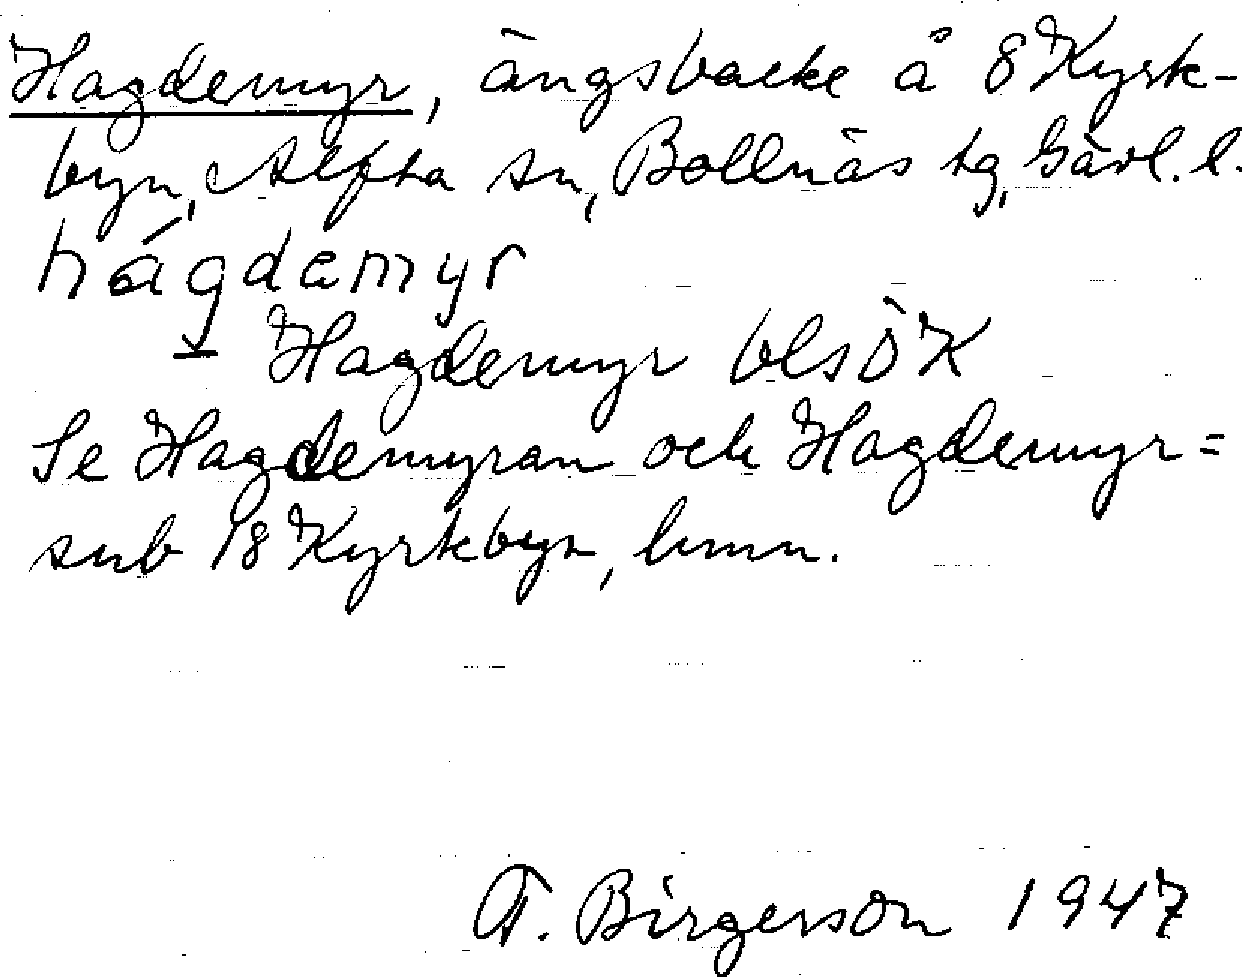 Hagdemyr, ängsbacke å 8 Kyrk-
byn, Alfta sn, Bollnäs tg, Gävl. l.
hágdemyr
Hagdemyr blsöK
Se Hagdemyran och Hagdemyr=
sub 18 Kyrkbyn,
F. Birgerson 1947